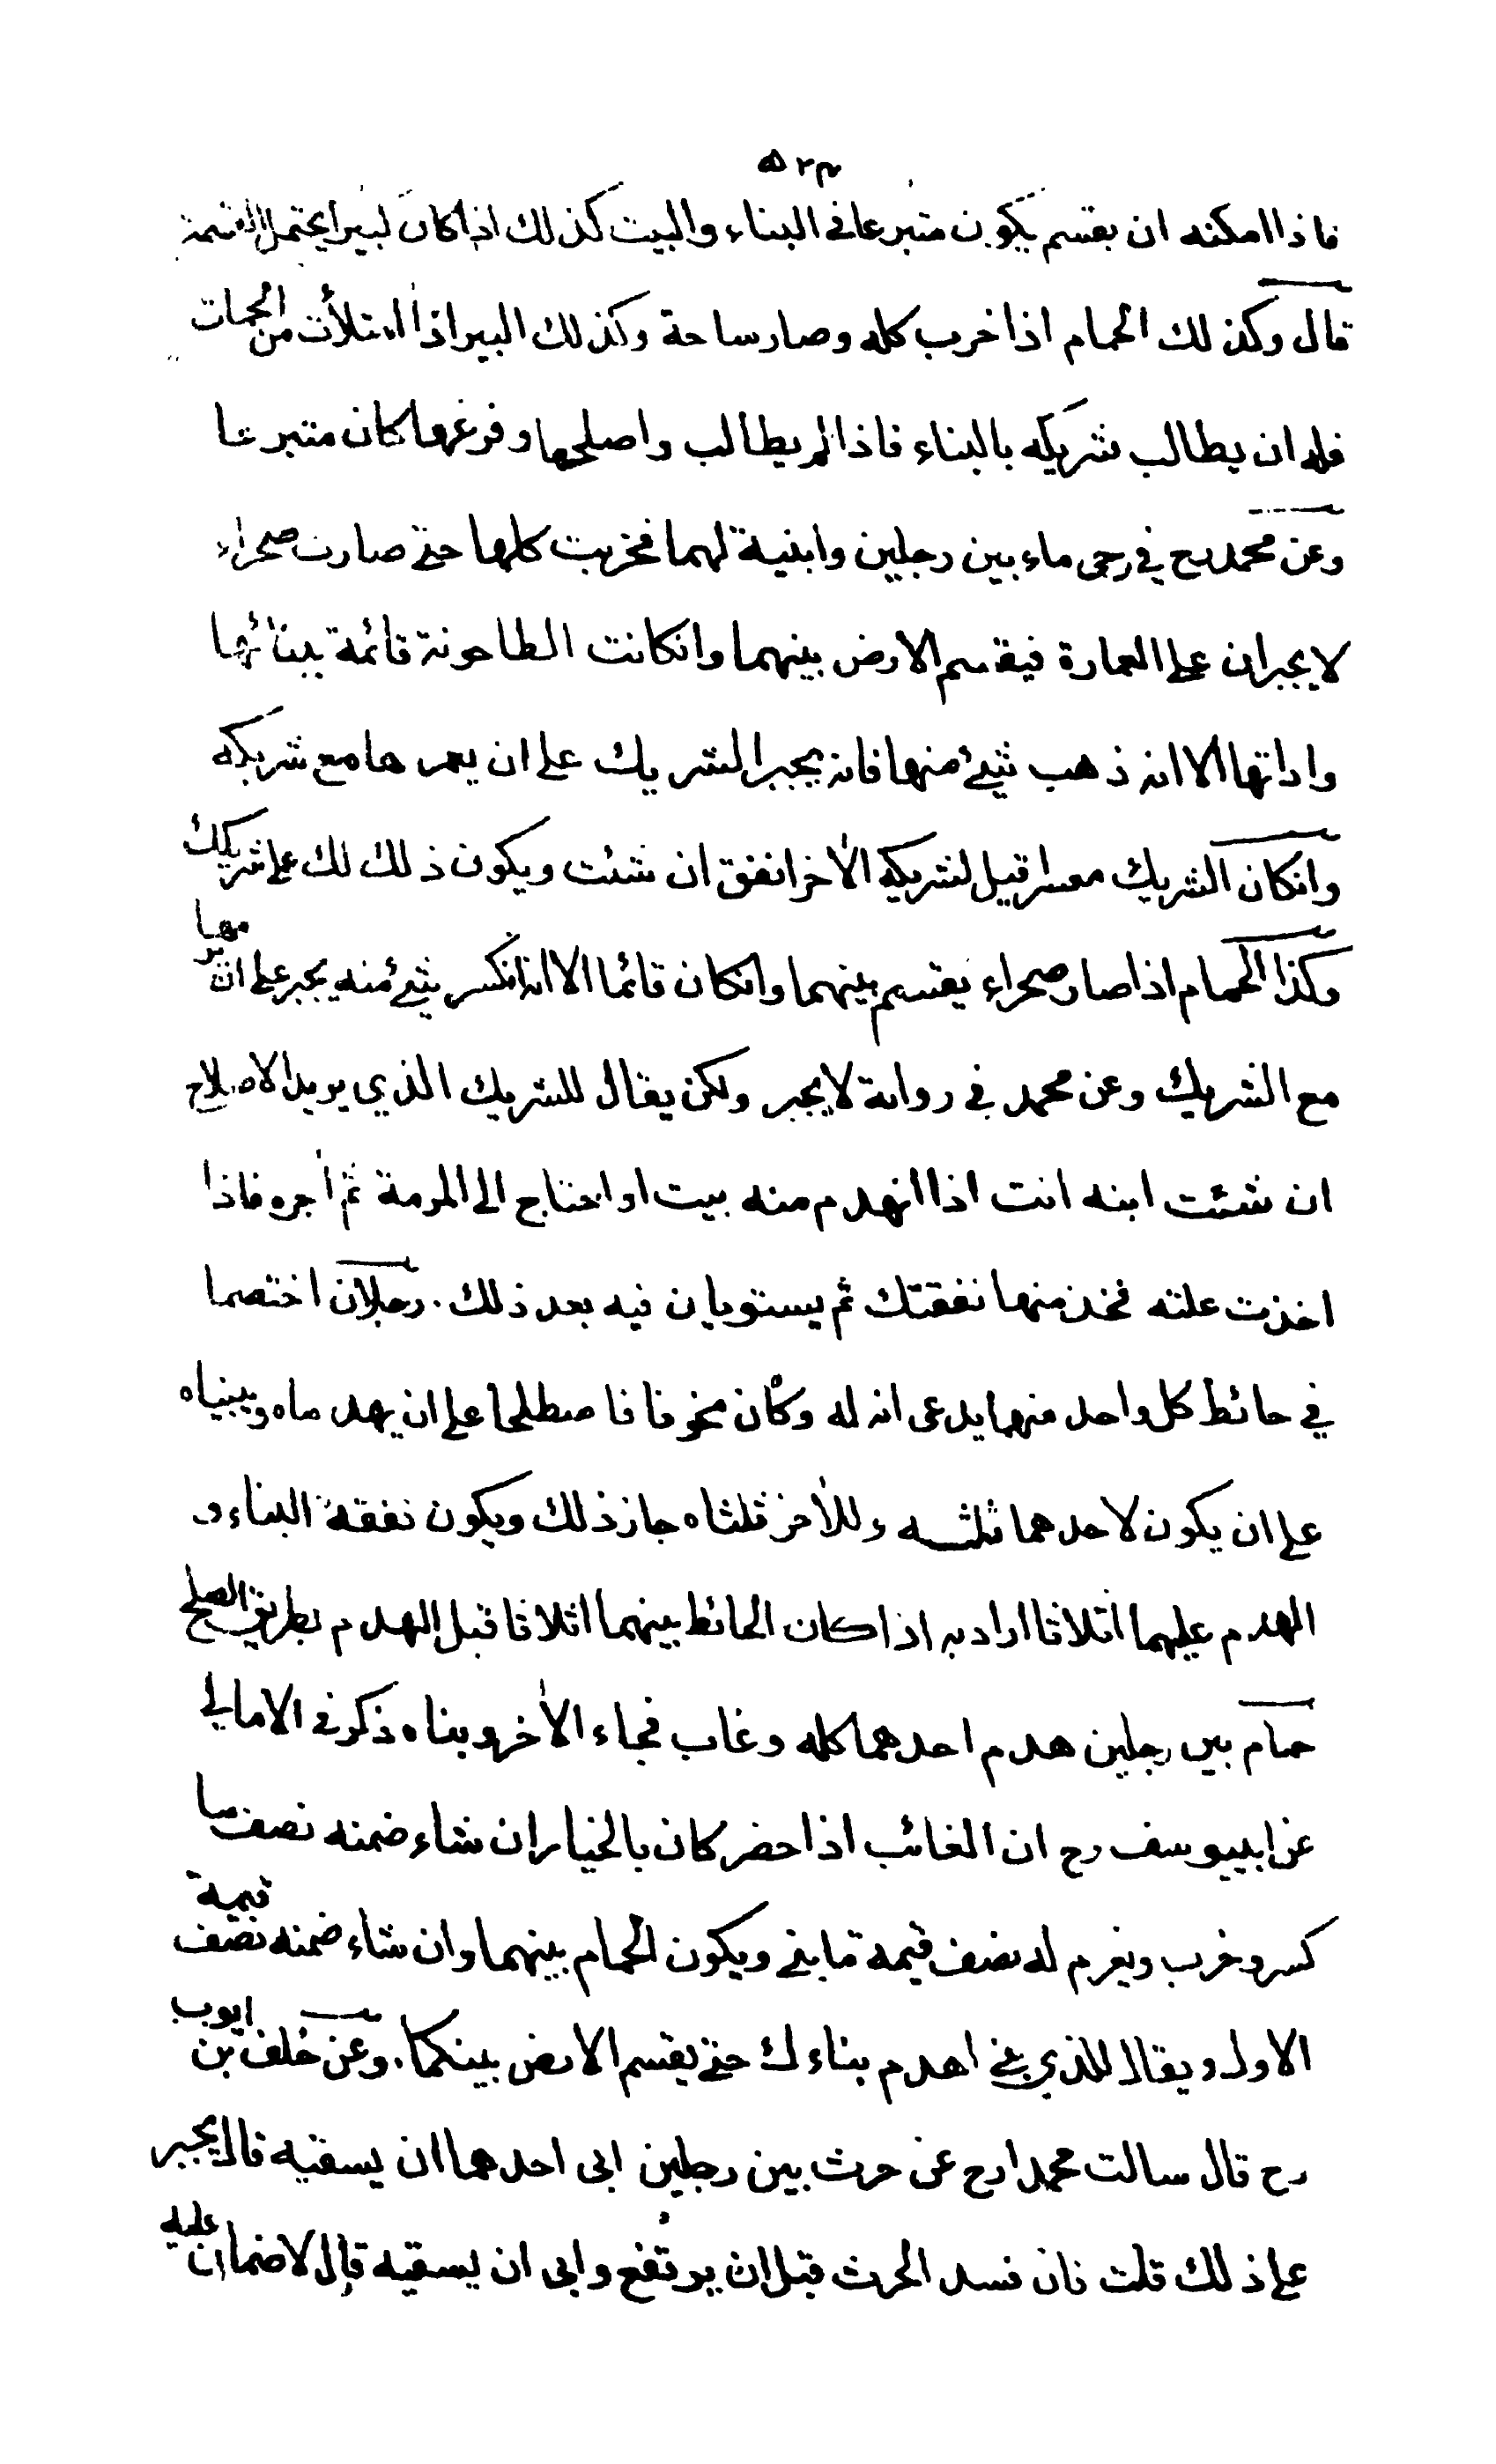 ٥٢٣
فاذا امكنه ان يقسم يكون متبرعا في البناء والبيت كذلك اذا كان كبيرا يحتمل القسمة
قال وكذلك الحمام اذا خرب كله وصار ساحة وكذلك البير اذا امتلأت من الحمات
فله ان يطالب شريكه بالبناء فاذا لم يطالب واصلحها وفرغها كان متبرعا
وعن محمد رح في رحى ماء بين رجلين وابنية لهما فخربت كلها حتى صارت صحراء
لا يجبران على العمارة فيقسم الارض بينهما وانكانت الطاحونة قائمة ببنائها
واداتها الا انه ذهب شئ منها فانه يجبر الشريك على ان يعمرها مع شريكه
وانكان الشريك معسرا قيل لشريكه الأخر انفق ان شئت ويكون ذلك لك على شريكك
وكذا الحمام اذا صار صحراء يقسم بينهما وانكان قائما الا انه انكسر شئ منه يجبر على ان يرمها
مع الشريك وعن محمد في رواية لا يجبر ولكن يقال للشريك الذي يريد الاصلاح
ان شئت ابنه انت اذا انهدم منه بيت او احتاج الى المرمة ثم أجره فاذا
اخذت غلته فخذ منها نفقتك ثم يستويان فيه بعد ذلك . رجلان اختصما
في حائط كل واحد منهما يدعى انه له وكان مخوفا فاصطلحا على ان يهدماه ويبنياه
على ان يكون لاحدهما ثلثه وللأخر ثلثاه جاز ذلك ويكون نفقة البناء و
الهدم عليهما اثلاثا اراد به اذا كان الحائط بينهما اثلاثا قبل الهدم بطريق الصلح
حمام بين رجلين هدم احدهما كله وغاب فجاء الأخر وبناه ذكر في الامالي
عن ابييوسف رح ان الغائب اذا حضر كان بالخيار ان شاء ضمنه نصف ما
كسر وخرب ويغرم له نصف قيمة ما بنى ويكون الحمام بينهما وان شاء ضمنه نصف قيمة
الاول ويقال للذي بنى اهدم بناءك حتى يقسم الارض بينكما . وعن خلف بن ايوب
رح قال سالت محمدا رح عن حرث بين رجلين ابى احدهما ان يسقيه قال يجبر
على ذلك قلت فان فسد الحرث قبل ان يرتفع وابى ان يسقيه قال لا ضمان عليه